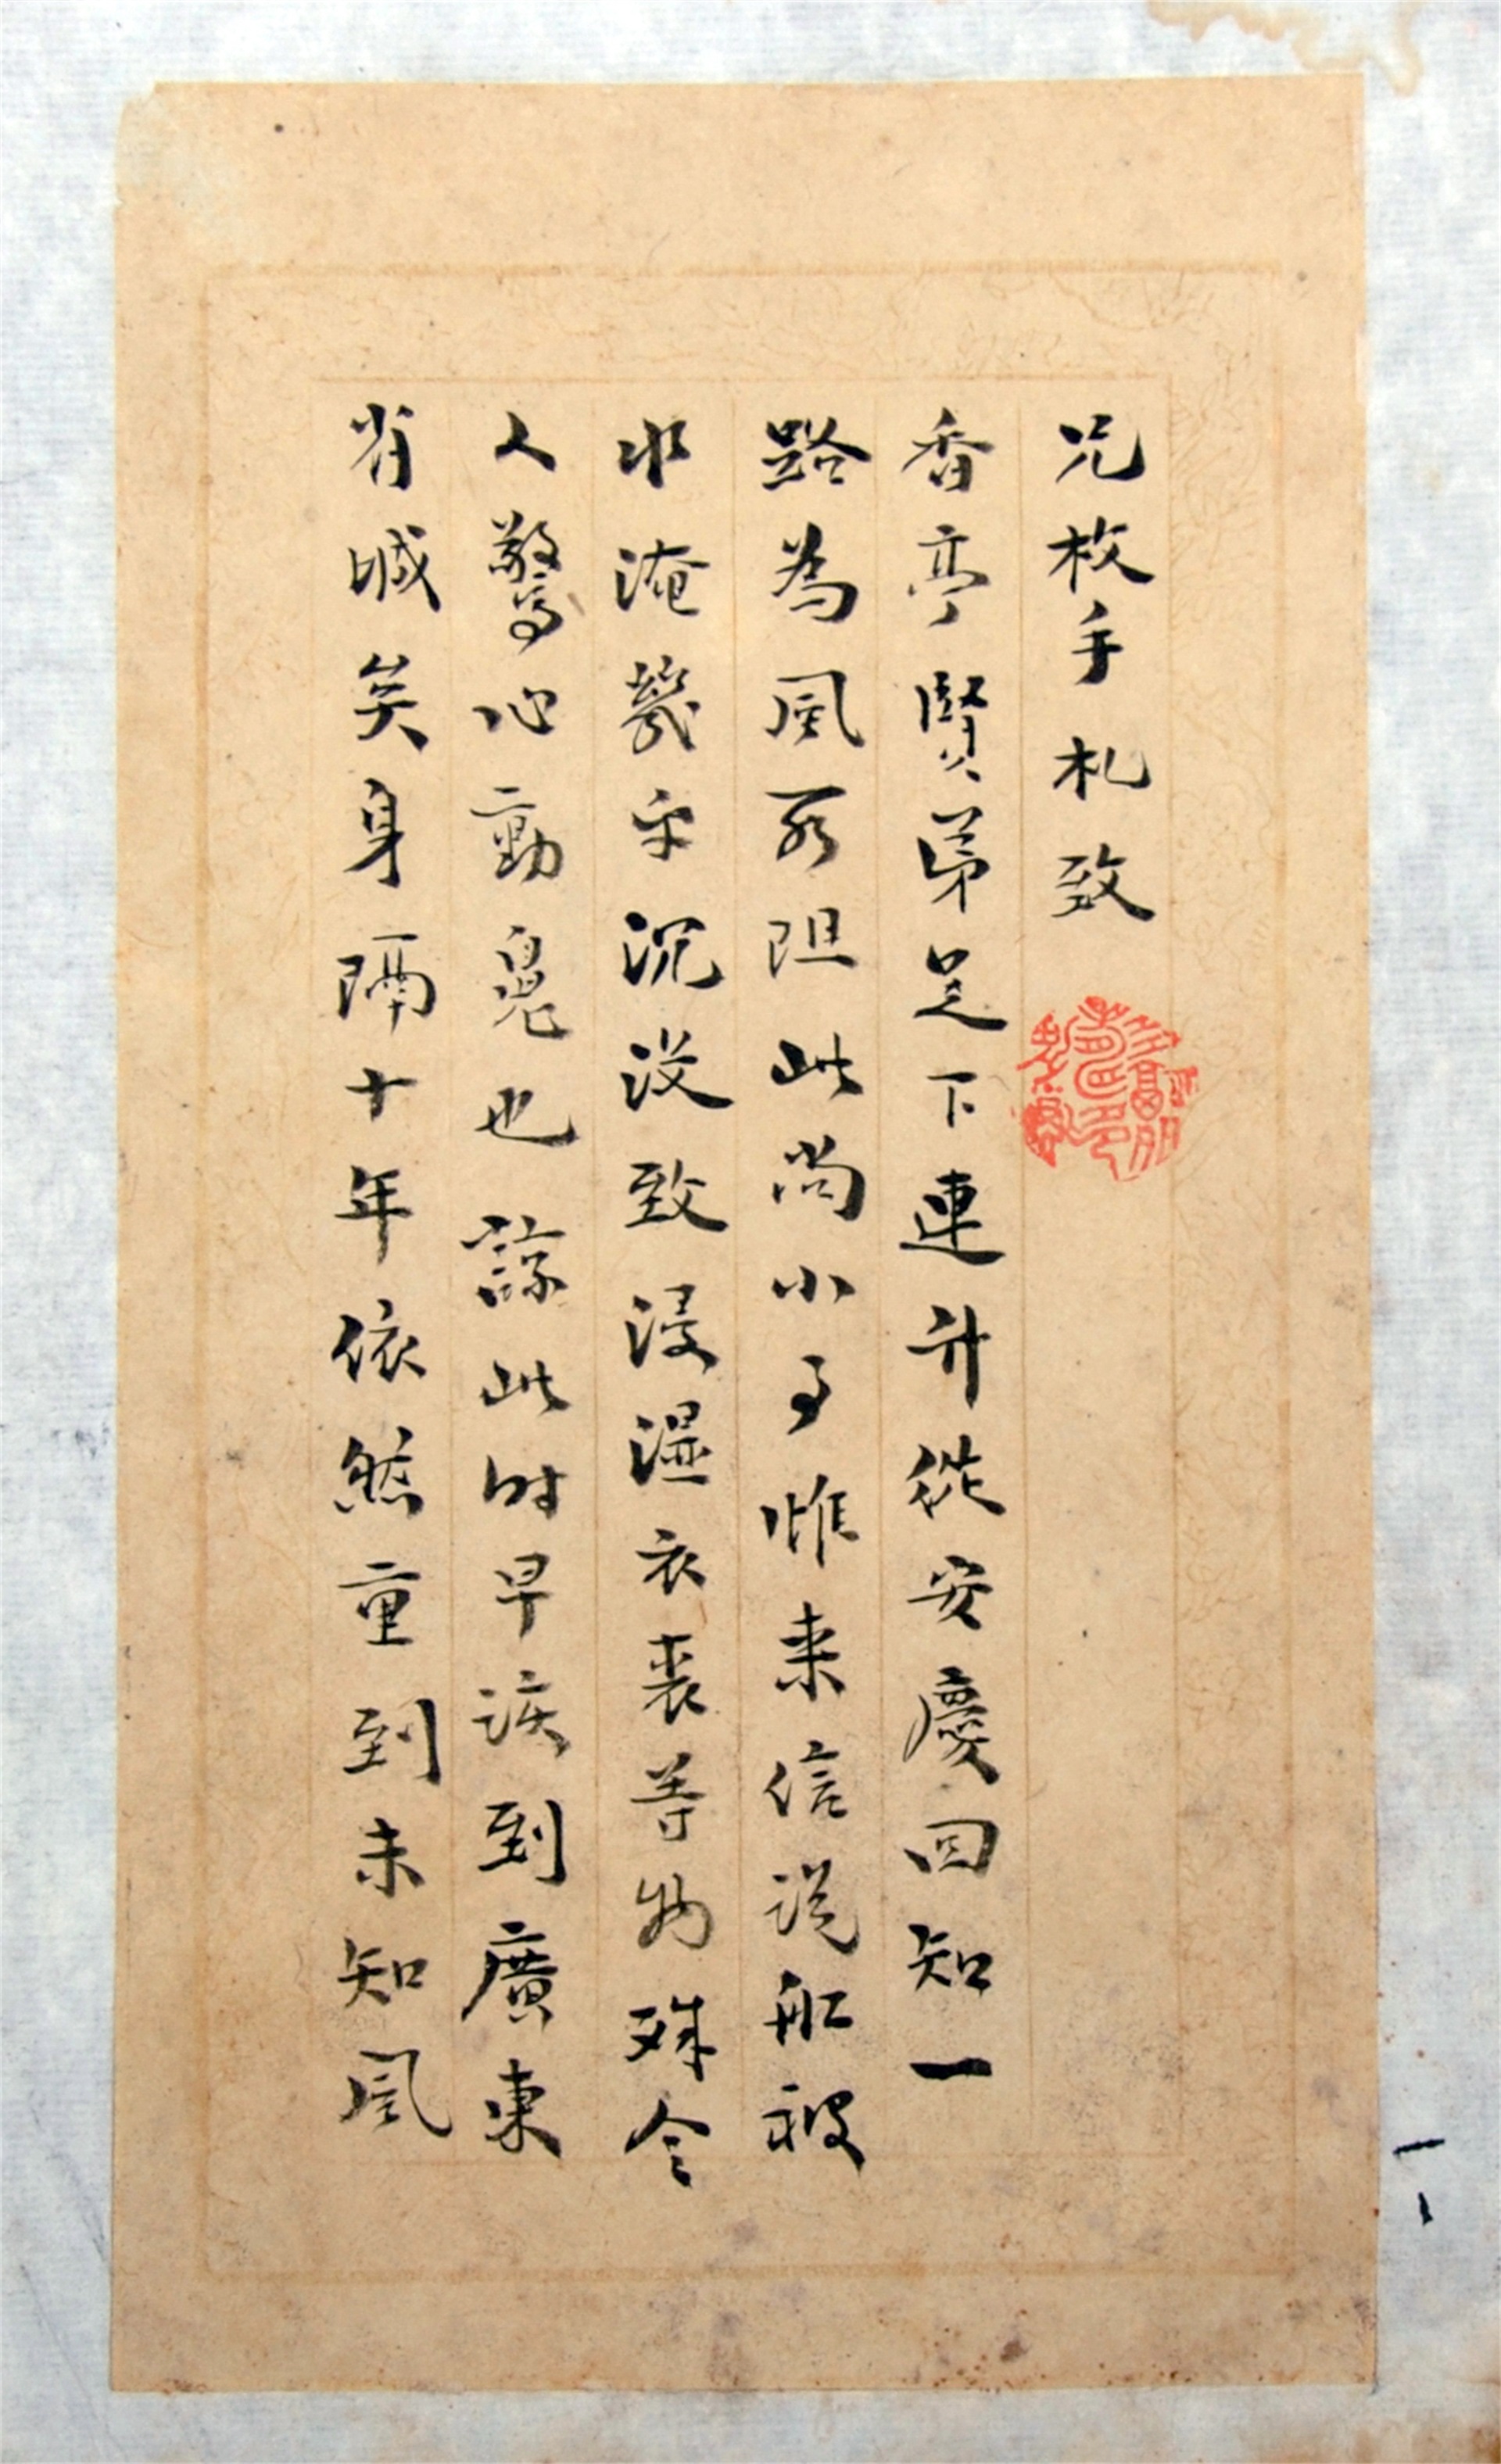 兄枚手札致
香亭賢弟足下連升從安慶回知一
路為風所阻此尚小事惟來信說船被
水淹幾乎沉没致浸濕衣裘等物殊令
人驚心動魄也諒此時早該到廣東
省城矣身隔十年依然重到未知風